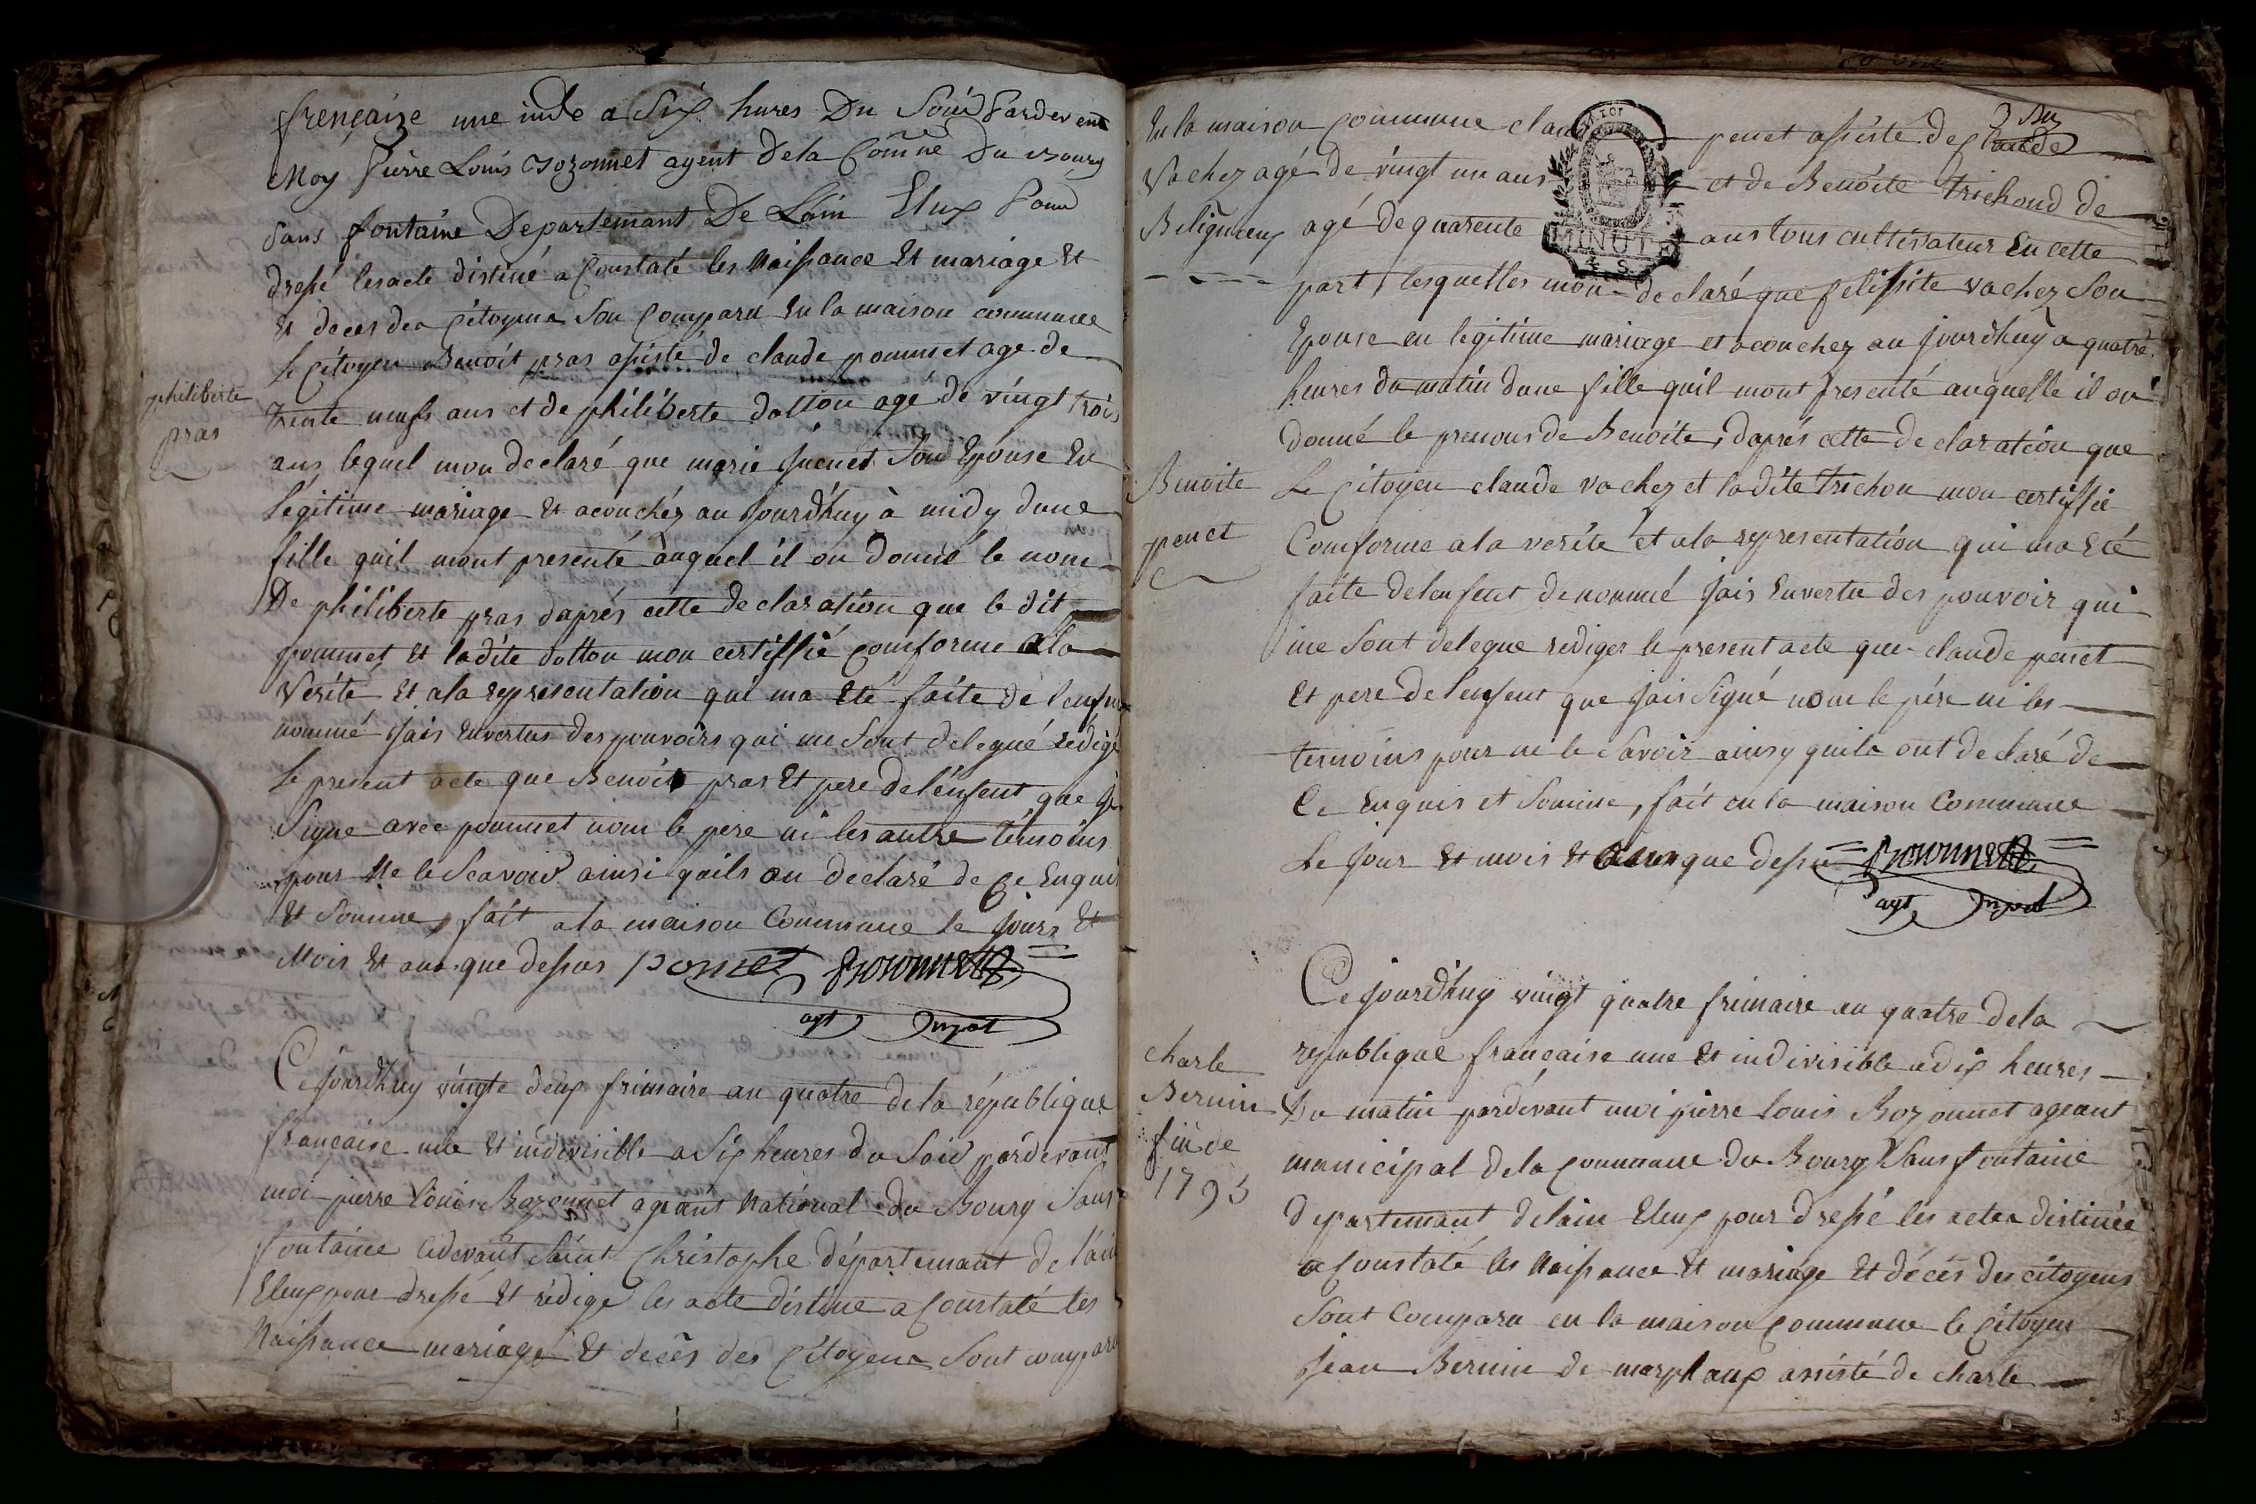 françaize une inde a Six hures Du Soir Pardevent
Moy Pierre Louis Bozonnet agent dela Comne Du Bourg
Sans fontaine Departemant De Lain Elux Pour
dressé les acte distiné a Constaté les Naissance Et mariage Et
Et deces des Citoyens Son Comparu En la maison commune
Le Citoyen Benoit pras assisté de claude pommet age de
trente neufs ans et de philiberte dotton agé de vingt trois
philiberte
pras
ans lequel mon declaré que marie Son Epouse En
légitime mariage Et acouchéz au Jourdhuy à midy dune
fille quil mont presenté auquel il on Donné le nom
De philiberte pras daprés cette declaration que le dit
pommet Et ladite dotton mon certiffié Comforme ala
Verité Et ala representation qui ma Eté faite de lenfent
nommé Jais Envertus des pouvoirs qui me Sont delegué rédigé
Le present acte que Benoit pras Et pere delenfent que Jai
Signe avec pommet nom le pere ni les autre témoins
pour Ne le Scavoir ainsi quils on declaré de Ce Enquis
Et Somme, fait ala maison Commune le Jours Et
Mois Et ans que dessus pomet Bozonnet
agt mpal
Cejourdhuy vingte deux frimaire an quatre dela république
française une Et indivisible a Six heures du Soir pardevant
moi pierre Louis Bozonnet agéant National du Bourg Sans
fontaine cidevant Saint Christophe département de lain
Eleux pour dressé Et rédigé les acte déstiné a Constaté les
Naissance mariage Et décès des Citoyens Sont comparu
En la maison Commune claude penet assisté de claude
Vachez agé de vingt un ans et de Benoite trichoud de
Beligneux agé de quarente ans tous cultivateur En cette
MINUTE
4 S
part lesquelles mon declaré que felissite vachez Son
Epouse en legitime mariage et acouchez au jourdhuy a quatre
heures du matin dune fille quil mont presenté auquelle il on
donné le prenons de Benoite, daprés cette declaration que
Benoite
penet
Le Citoyen claude vachez et ladite trichon mon certiffié
Comforme ala verité et ala representation qui ma Eté
faite delenfent denommé Jais Envertu des pouvoir qui
me Sont delegue rediger le present acte que claude penet
Et pere delenfent que Jais Signé nom le pére ni les
temoins pour ne le Savoir ainsy quils ont declaré de
Ce Enquis et Somme, fait en la maison Commune
Le Jour Et mois Et que dessus Bozonnet
agt mpal
Ce jourdhuy vingt quatre frimaire an quatre dela
republique française une Et indivisible a dix heures
charle
Bernin
fin de
1795
Du matin pardevant moi pierre louis Bozonnet ageant
municipal dela Commune du Bourg Sans fontaine
departemant delain Eleux pour dressé les actes distinée
a Constaté les Naissance Et mariage Et décès des citoyens
Sont Comparu en la maison Commune le Citoyen
Jean Bernin de assisté de charle